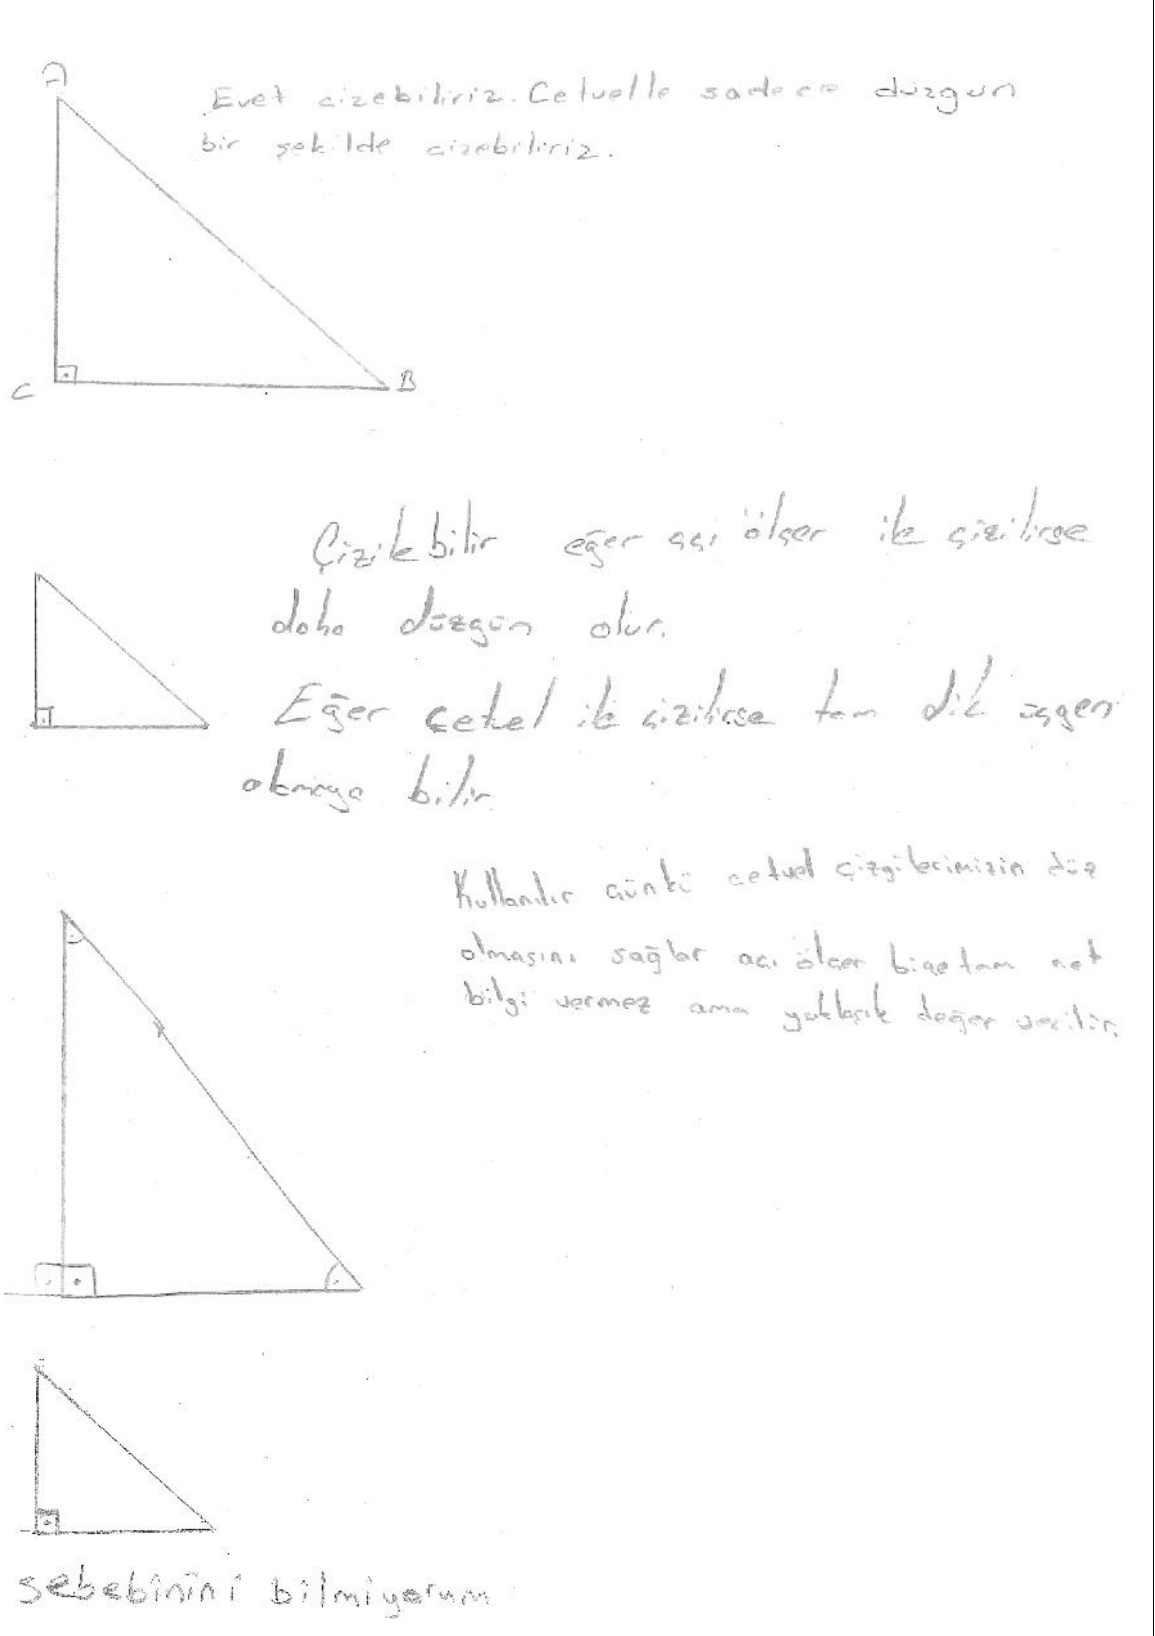 A
Evet cizebiliriz. Cetvelle sadece düzgün
bir şekilde cizebiliriz.
C
B
Çizilebilir eğer açı ölçer ile çizilirse
daha düzgün olur.
Eğer çetvel ile çizilirse tam dik üçgen
olmaya bilir
Kullanılır çünkü cetvel çizgilerimizin düz
olmasını sağlar açı ölçer bize tam net
bilgi vermez ama yaklaşık değer verilir.
sebebinini bilmiyorum